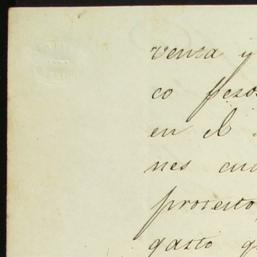 venza y
co pesos
en el
nes cu
proserto
gasto q